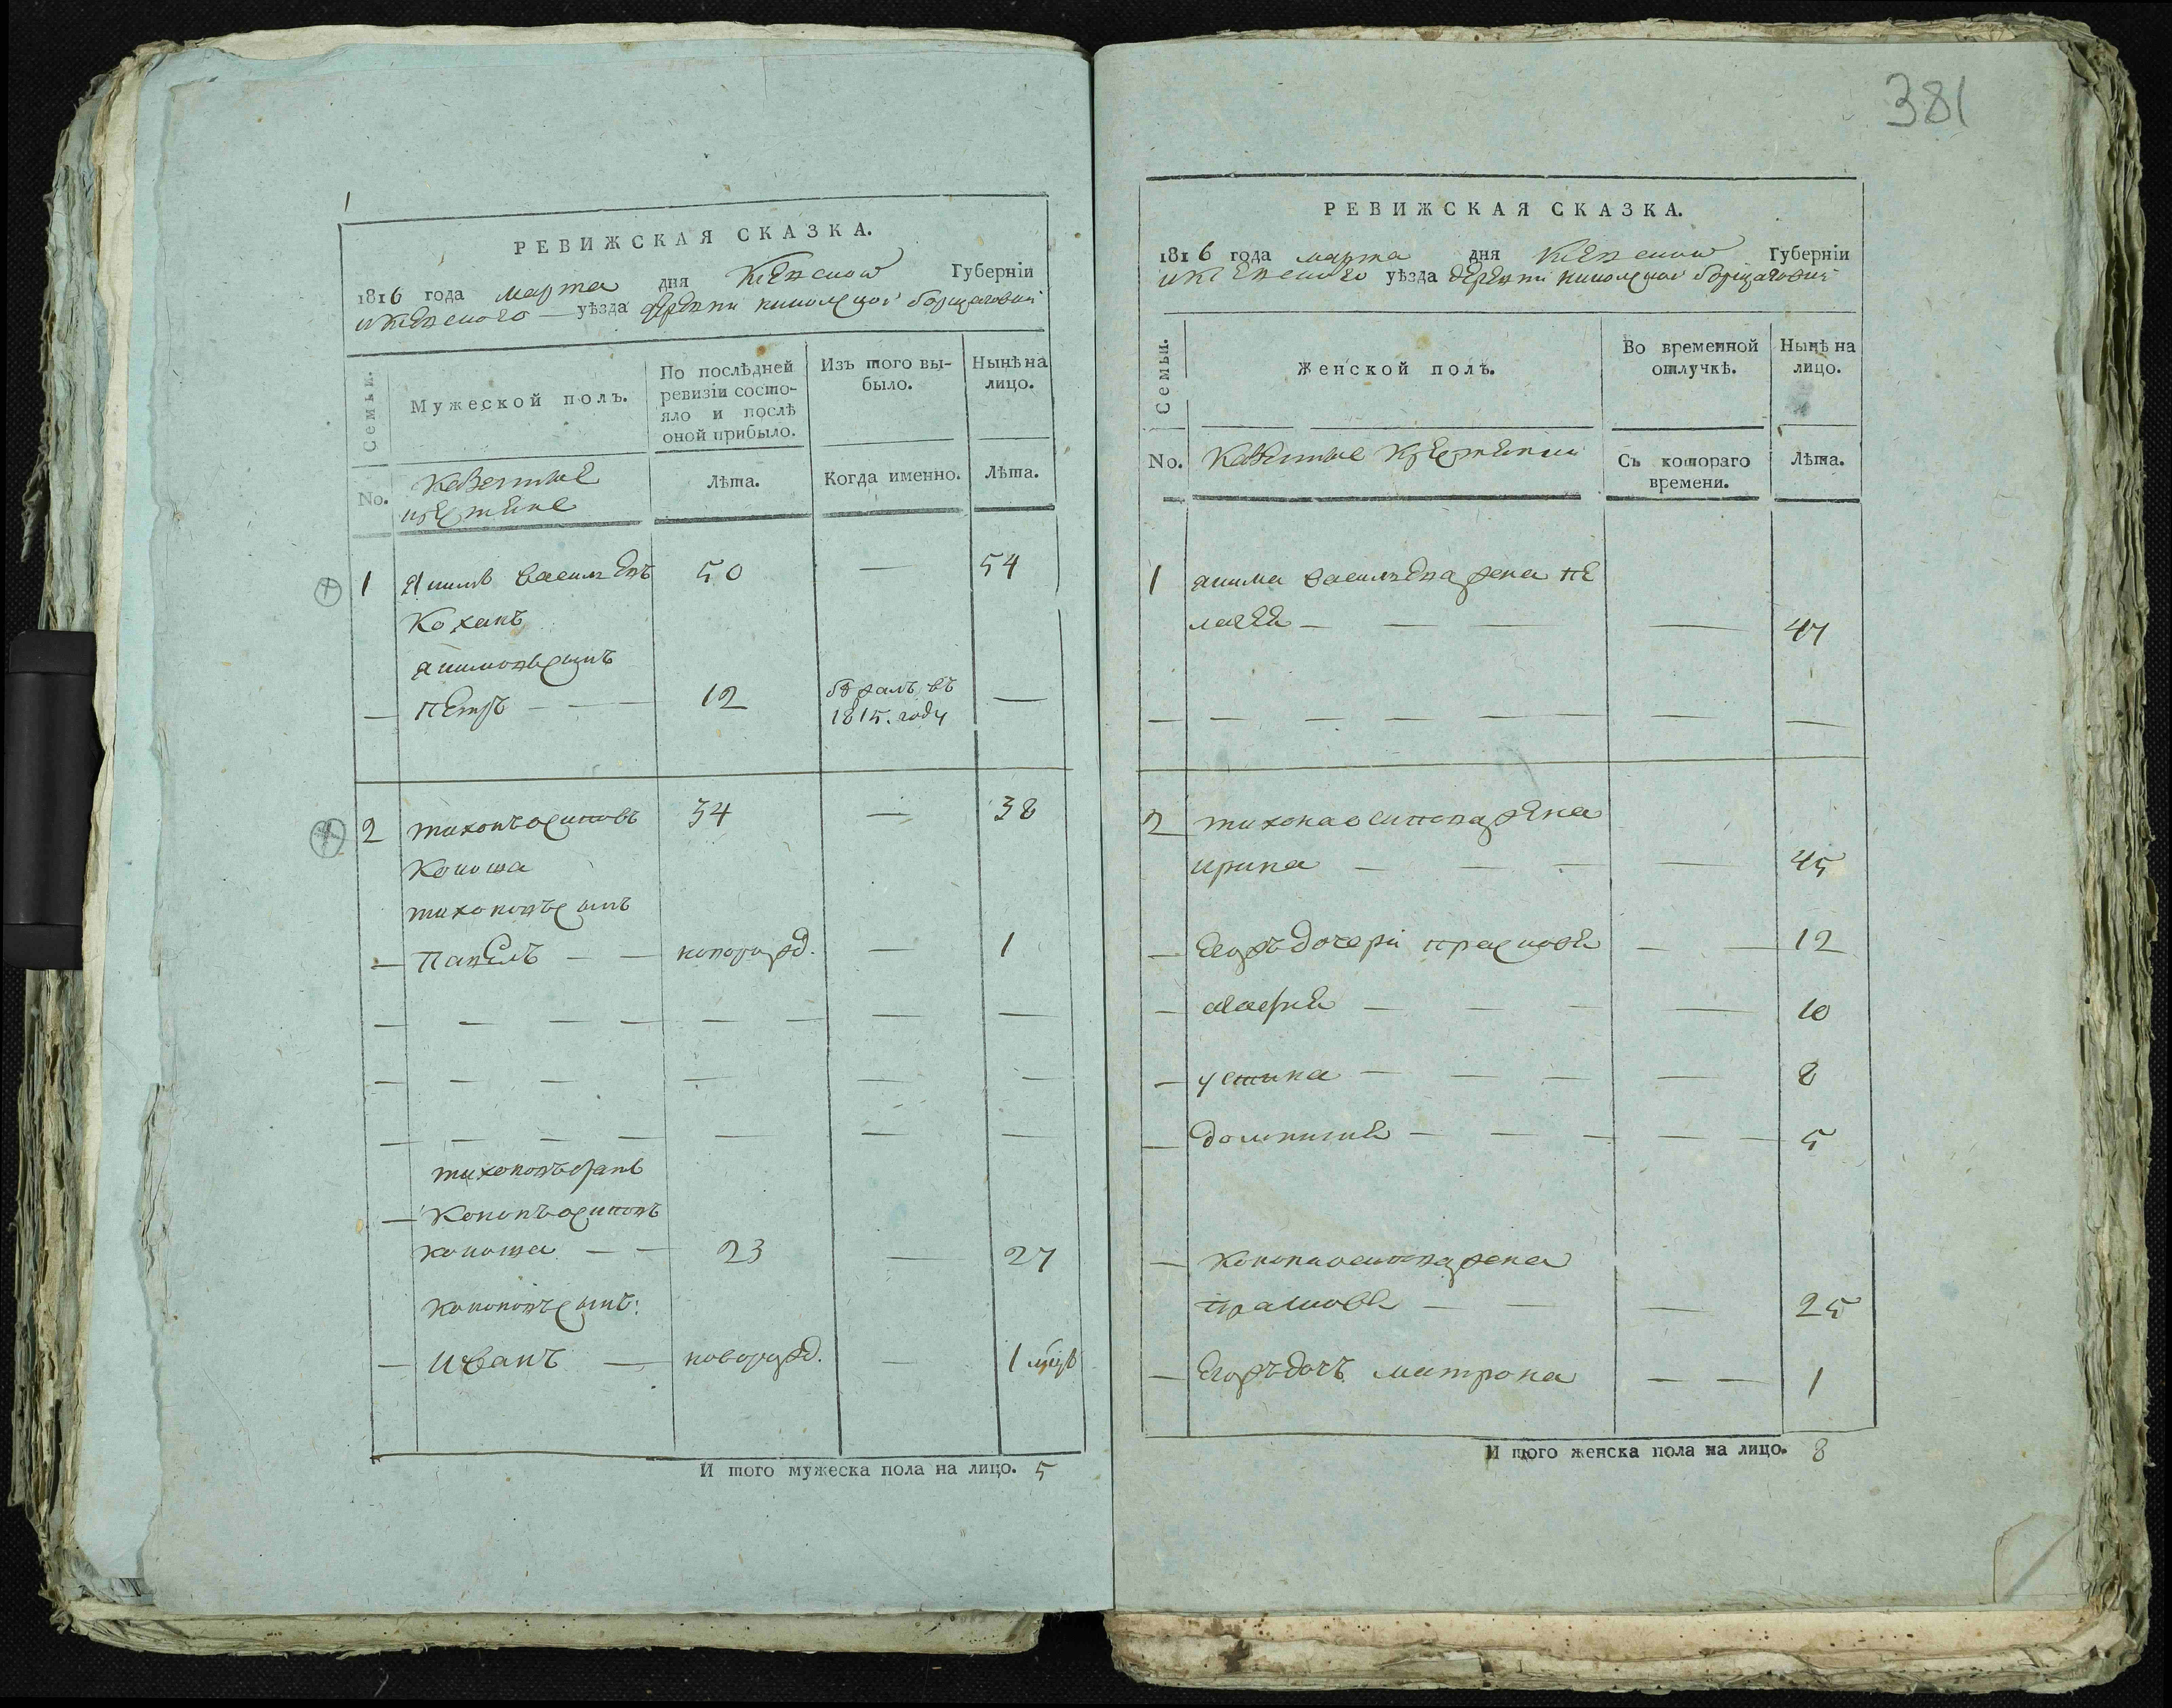 РЕВИЖСКАЯ СКАЗКА.
1816 года марта дня Кіевской Губерніи
и Кіевского уѣзда деревни николской борщаговки
Семьи.
Мужеской полъ.
По послѣдней ревизіи состояло и послѣ оной прибыло.
Изъ того выбыло.
Нынѣ на лицо.
No.
Казенные
крестяне
Лѣта.
Когда именно.
Лѣта.
1 Якимъ василъевъ 50 — 54
Коханъ
якимовъ сынъ
— Петръ — — 12 бѣжалъ въ 1815. году —
2 тихонъ осиповъ 34 — 38
Коноша
тихоновъ сынъ
— Павелъ — — новорожд. — 1
тихоновъ братъ
— Кононъ осиповъ
коноша — — 23 — 27
кононовъ сынъ:
— Иванъ — новорожд. — 1 мѣсяц
И того мужеска пола на лицо. 5
381
РЕВИЖСКАЯ СКАЗКА.
1816 года марта дня Кіевской Губерніи
и Кіевского уѣзда деревни николской борщаговки
Семьи.
Женской полъ.
Во временной отлучкѣ.
Нынѣ на лицо.
No.
Казенные Крестянки
Съ котораго времени.
Лѣта.
1 якима василъева жена пе
лагея — — — — 47
2 тихона осипова жена
ирина — — — — 45
— Егожъ дочери прасковя — — 12
— марфия — — — — 10
— устина — — — — 8
— домникия — — — — — 5
— Конона осипова жена
прасковя — — — 25
— Егожъ дочъ митрона — — 1
И того женска пола на лицо. 8